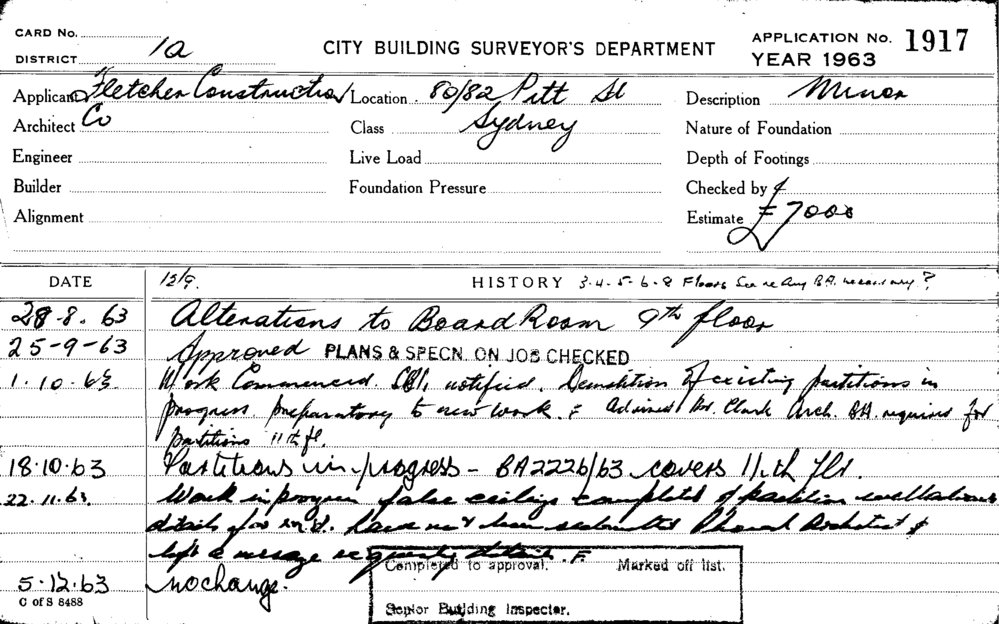 CARD No.
DISTRICT 1a
CITY BUILDING SURVEYOR'S DEPARTMENT
APPLICATION No. 1917
YEAR 1963
Applicant Fletcher Construction
Location 80/82 Pitt St
Description Minor
Architect Co
Class Sydney
Nature of Foundation
Engineer
Live Load
Depth of Footings
Builder
Foundation Pressure
Checked by
Alignment
Estimate £7000
DATE
HISTORY 3-4-5-6-8 Floors See re any BA necessary?
28-8.63 Alterations to Board Room 9th floor
25-9-63 Approved PLANS & SPECN. ON JOB CHECKED
1.10.63 Work Commenced. notified. Demolition of existing partitions in
progress preparatory to new work. Advised Mr. Clark Arch. BA. required for
partitions 11th fl.
18.10.63 Partitions in progress - BA2226/63 covers 11.th flr.
22.11.63 Work in progress false ceilings completed of partition
details for have not been submitted Phoned Architect &
left a message requesting details. F.
Completed to approval. Marked off list.
5.12.63 no change.
C of S 8488
Senior Building Inspector.